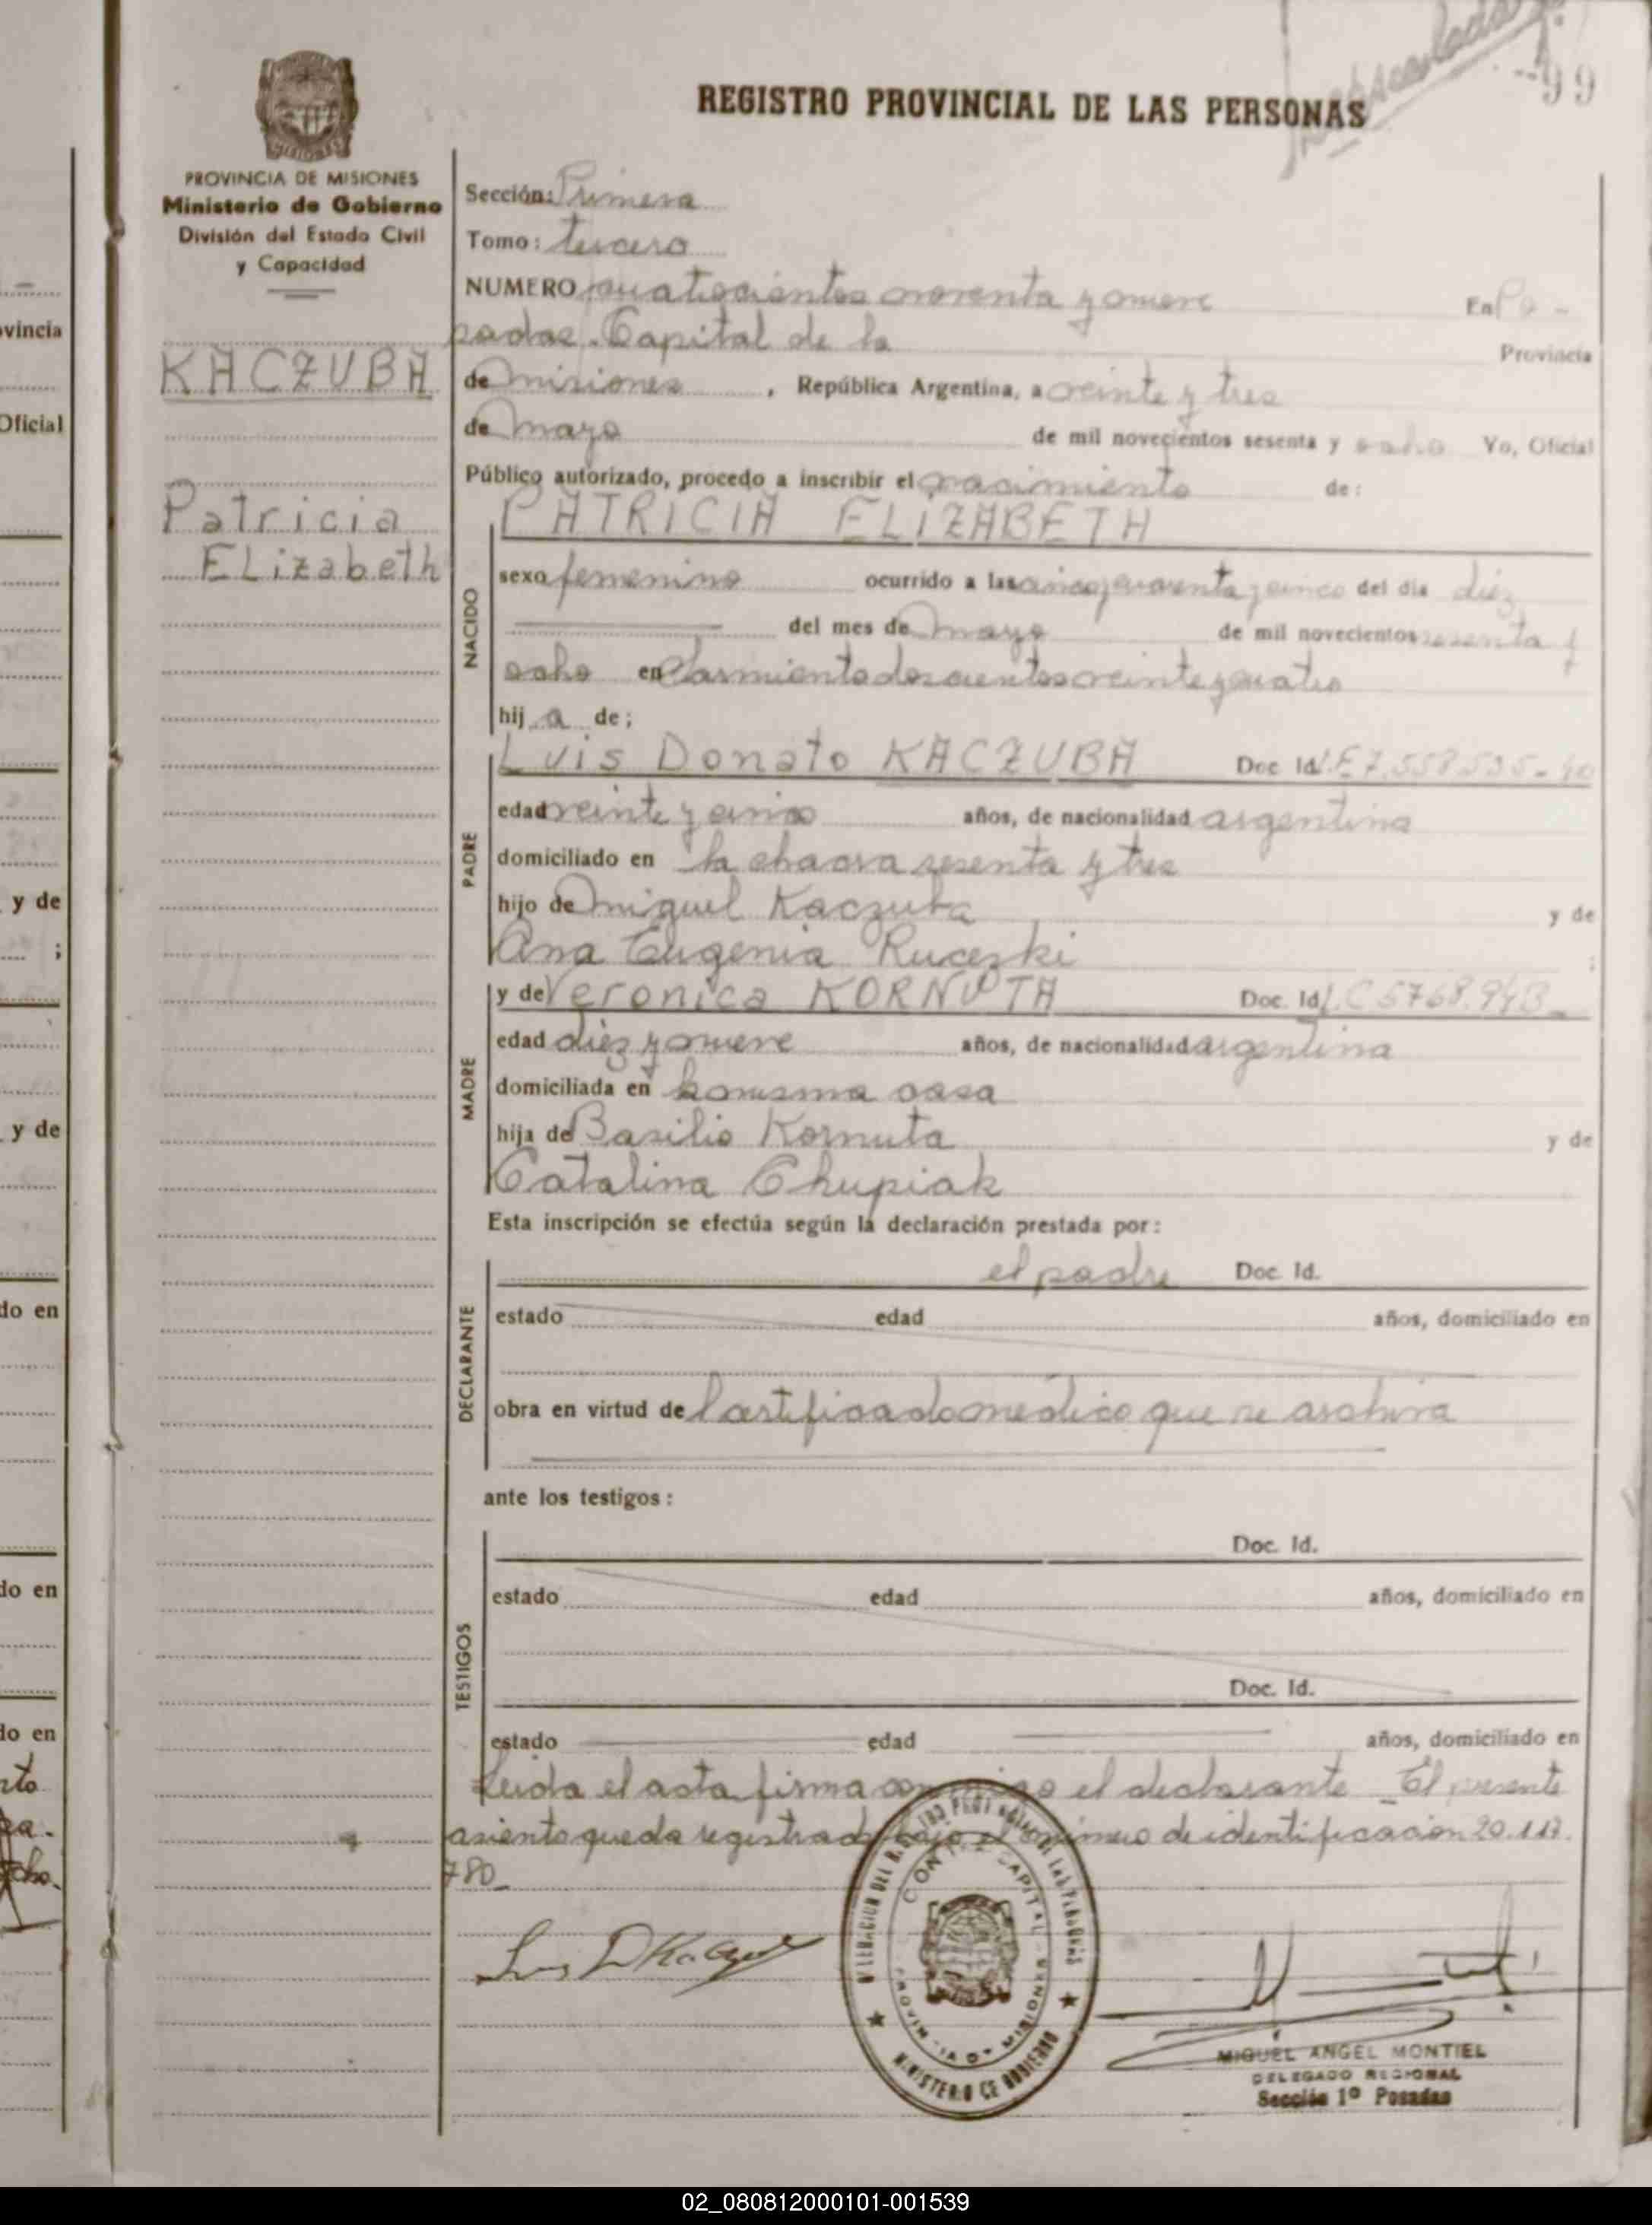 99
REGISTRO PROVINCIAL DE LAS PERSONAS
PROVINCIA DE MISIONES
Ministerio de Gobierno
División del Estado Civil
y Capacidad
KACZUBA
Patricia
Elizabeth
Sección: Primera
Tomo: tercero
NUMERO cuatrocientos noventa y nueve En Po-
sadas. Capital de la Provincia
de Misiones, República Argentina, a veinte y tres
de mayo de mil novecientos sesenta y ocho Yo, Oficial
Público autorizado, procedo a inscribir el nacimiento de:
PATRICIA ELIZABETH
NACIDO
sexo femenino ocurrido a las cinco y cuarenta y cinco del dia diez
del mes de mayo de mil novecientos sesenta y
ocho en Sarmiento doscientos veinte y cuatro
hij a de;
PADRE
Luis Donato KACZUBA Doc Id L.E 7.558.535-
edad veinte y cinco años, de nacionalidad argentina
domiciliado en la chacra sesenta y tres
hijo de Miguel Kaczuba y de
Ana Eugenia Ruceski ;
MADRE
y de Veronica KORNUTA Doc. Id L.C 5768.943
edad diez y nueve años, de nacionalidad argentina
domiciliada en la misma casa
hija de Basilio Kornuta y de
Catalina Chupiak
Esta inscripción se efectúa según la declaración prestada por:
DECLARANTE
el padre Doc. Id.
estado edad años, domiciliado en
obra en virtud de Certificado medico que se archiva
ante los testigos:
TESTIGOS
Doc. Id.
estado edad años, domiciliado en
Doc. Id.
estado edad años, domiciliado en
Leida el acta firma conmigo el declarante El presente
asiento queda registrado bajo el número de identificación 20.117.
780
Luis D Kaczuba
MINISTERIO DE GOBIERNO
MIGUEL ANGEL MONTIEL
DELEGADO REGIONAL
Sección 1º Posadas
vincia
Oficial
y de
;
y de
do en
do en
do en
02_080812000101-001539